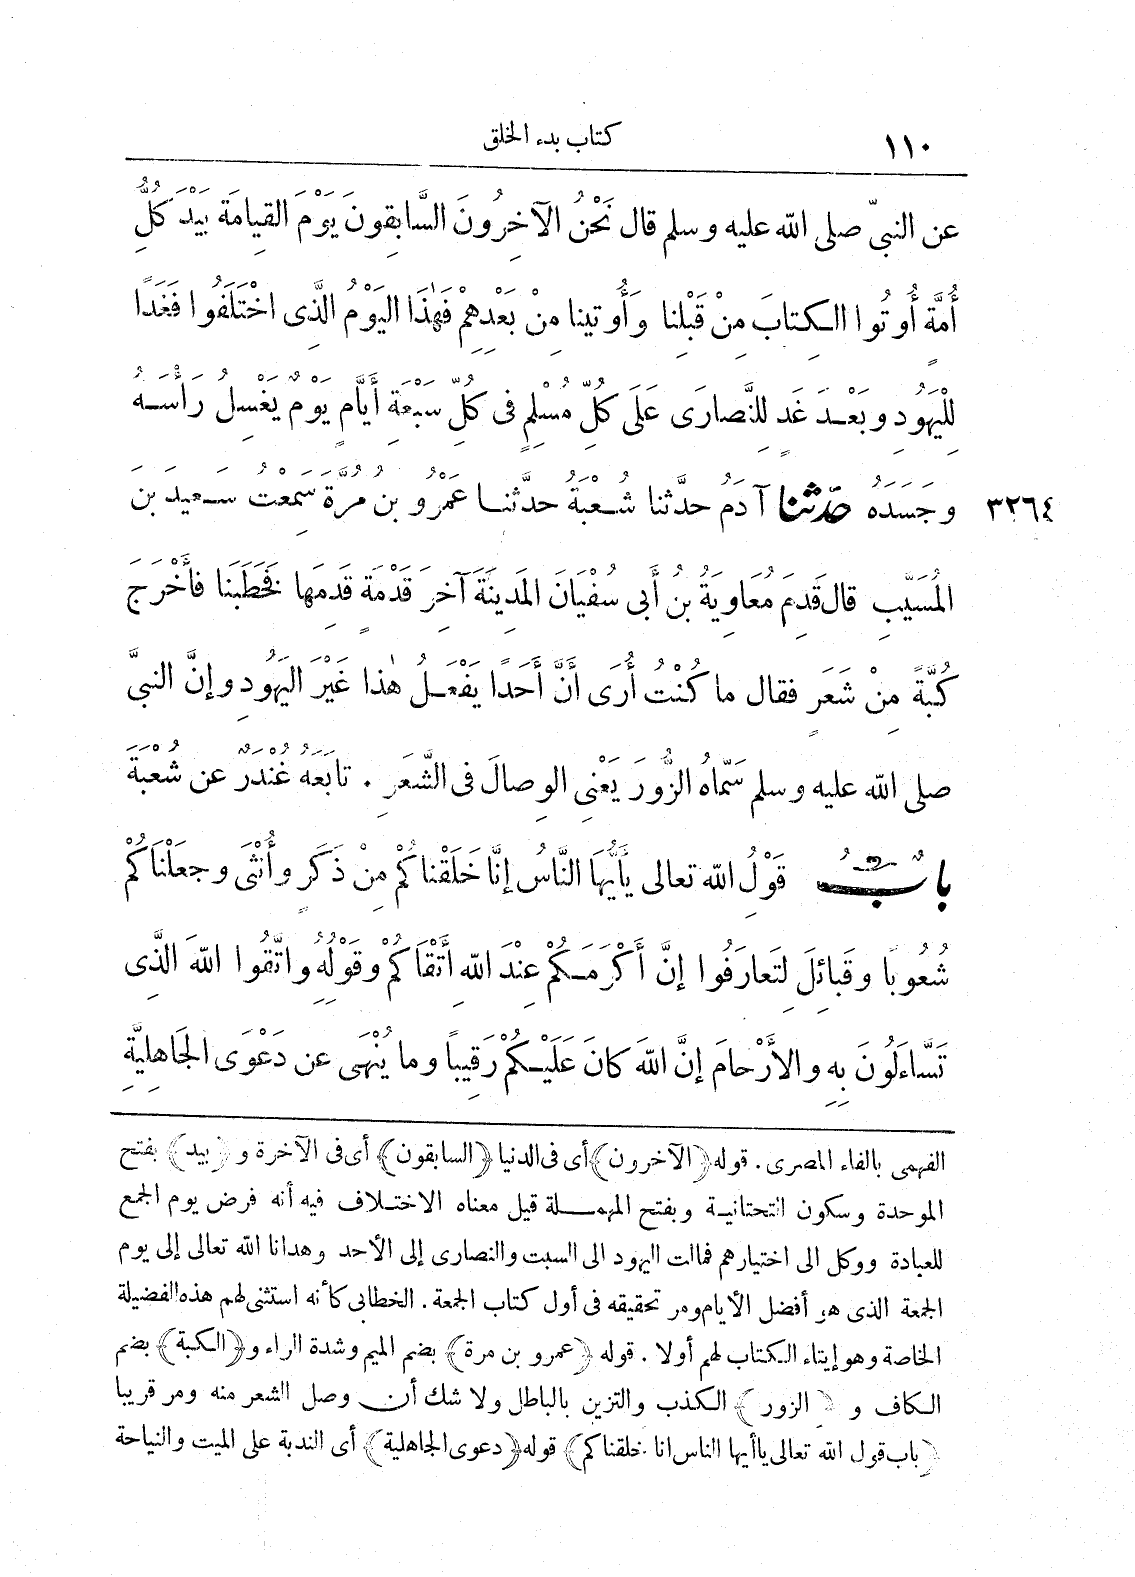 ١١٠ كتاب بدء الخلق
عن النبيّ صلى الله عليه وسلم قال نَحْنُ الآخِرُونَ السَّابِقونَ يَوْمَ القِيامَةِ بَيْدَ كُلِّ
أُمَّةٍ أُوتُوا الكِتابَ مِنْ قَبْلِنا وَأُوتِينا مِنْ بَعْدِهِمْ فَهٰذَا اليَوْمُ الَّذِى اخْتَلَفُوا فَغَدًا
لِلْيَهُودِ وبَعْدَ غَدٍ لِلنَّصارَى عَلَى كُلِّ مُسْلِمٍ فى كُلِّ سَبْعَةِ أَيَّامٍ يَوْمٌ يَغْسِلُ رَأْسَهُ
وجَسَدَهُ حدّثنا آدَمُ حدَّثنا شُعْبَةُ حدَّثنا عَمْرُو بنُ مُرَّةَ سَمِعْتُ سَعِيدَ بنَ
٣٢٦٤
المُسَيَّبِ قال قَدِمَ مُعَاوِيَةُ بنُ أَبى سُفْيَانَ المَدِينَةَ آخِرَ قَدْمَةٍ قَدِمَها فَخَطَبَنا فأَخْرَجَ
كُبَّةً مِنْ شَعَرٍ فقال ما كُنْتُ أُرَى أَنَّ أَحَدًا يَفْعَلُ هٰذا غَيْرَ اليَهُودِ وإنَّ النبىَّ
صلى الله عليه وسلم سَمَّاهُ الزُّورَ يَعْنِى الوِصالَ فى الشَّعَرِ . تابَعَهُ غُنْدَرٌ عن شُعْبَةَ
بابُ قَوْلِ الله تعالى يأَيُّهَا النَّاسُ إنَّا خَلَقْناكُمْ مِنْ ذَكَرٍ وأُنْثَى وجعَلْنَاكُمْ
شُعُوبًا وقَبائِلَ لِتَعارَفُوا إنَّ أَكْرَمَكُمْ عِنْدَ اللهِ أَتْقَاكُمْ وقَوْلُهُ واتَّقُوا اللهَ الَّذِى
تَسَّاءَلُونَ بِهِ والأَرْحامَ إنَّ اللهَ كانَ عَلَيْكُمْ رَقِيباً وما يُنْهَى عن دَعْوَى الجَاهِلِيَّةِ
الفهمى بالفاء المصرى. قوله (الآخرون) أى فى الدنيا (السابقون) أى فى الآخرة و (بيد) بفتح
الموحدة وسكون التحتانية وبفتح المهملة قيل معناه الاختلاف فيه أنه فرض يوم الجمع
للعبادة ووكل الى اختيارهم فمالت اليهود الى السبت والنصارى إلى الأحد وهدانا الله تعالى إلى يوم
الجمعة الذى هو أفضل الأيام ومر تحقيقه فى أول كتاب الجمعة. الخطابى كأنه استثنى لهم هذه الفضيلة
الخاصة وهو إيتاء الكتاب لهم أولا. قوله (عمرو بن مرة) بضم الميم وشدة الراء و (الكبة) بضم
الكاف و (الزور) الكذب والتزين بالباطل ولا شك أن وصل الشعر منه ومر قريبا
(باب قول الله تعالى ياأيها الناس انا خلقناكم) قوله (دعوى الجاهلية) أى الندبة على الميت والنياحة